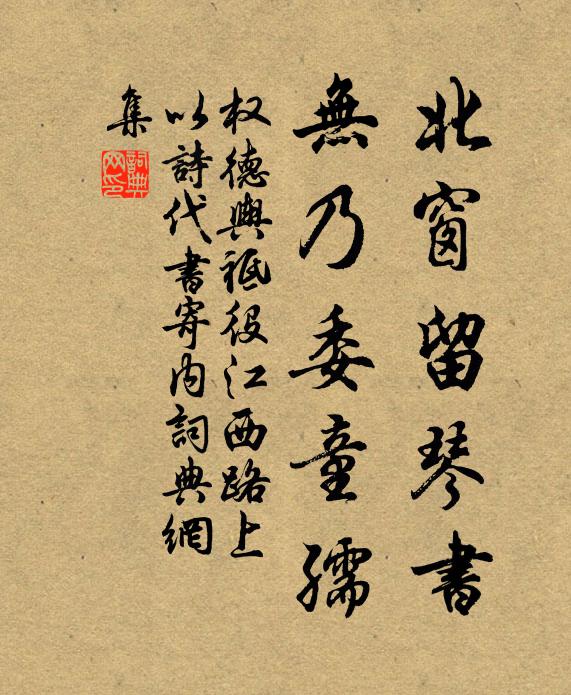 北窗留琴書
無乃委童孺
权德輿祇役江西路上
以詩代書寄内詞典網
集
詞典網印